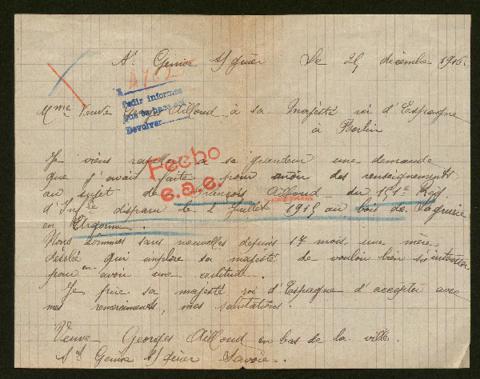 St Genix s/ guier Le 25 décembre 1916.
Mme Veuve Ailloud, à sa Majesté roi d'Espagne
à Berlin
Pedir informes
que se hace en
Devolver
Je viens à sa grandeur une demande
que j'avait faite pour avoir des renseignements
au sujet de François Ailloud du 151e Reg
d'Inf. disparu le 2 juillet 1915 au bois de
en Argonne.
Fecho
s.a.e.
Nous sommes sans nouvelles depuis 17 mois, une mère
désolée qui implore sa majesté de vouloir bien
pour en avoir une certitude.
Je prie sa majesté roi d'Espagne d'accepter avec
mes remerciements, mes salutations.
Veuve Georges Ailloud en bas de la ville.
St Genix s/ guier Savoie.